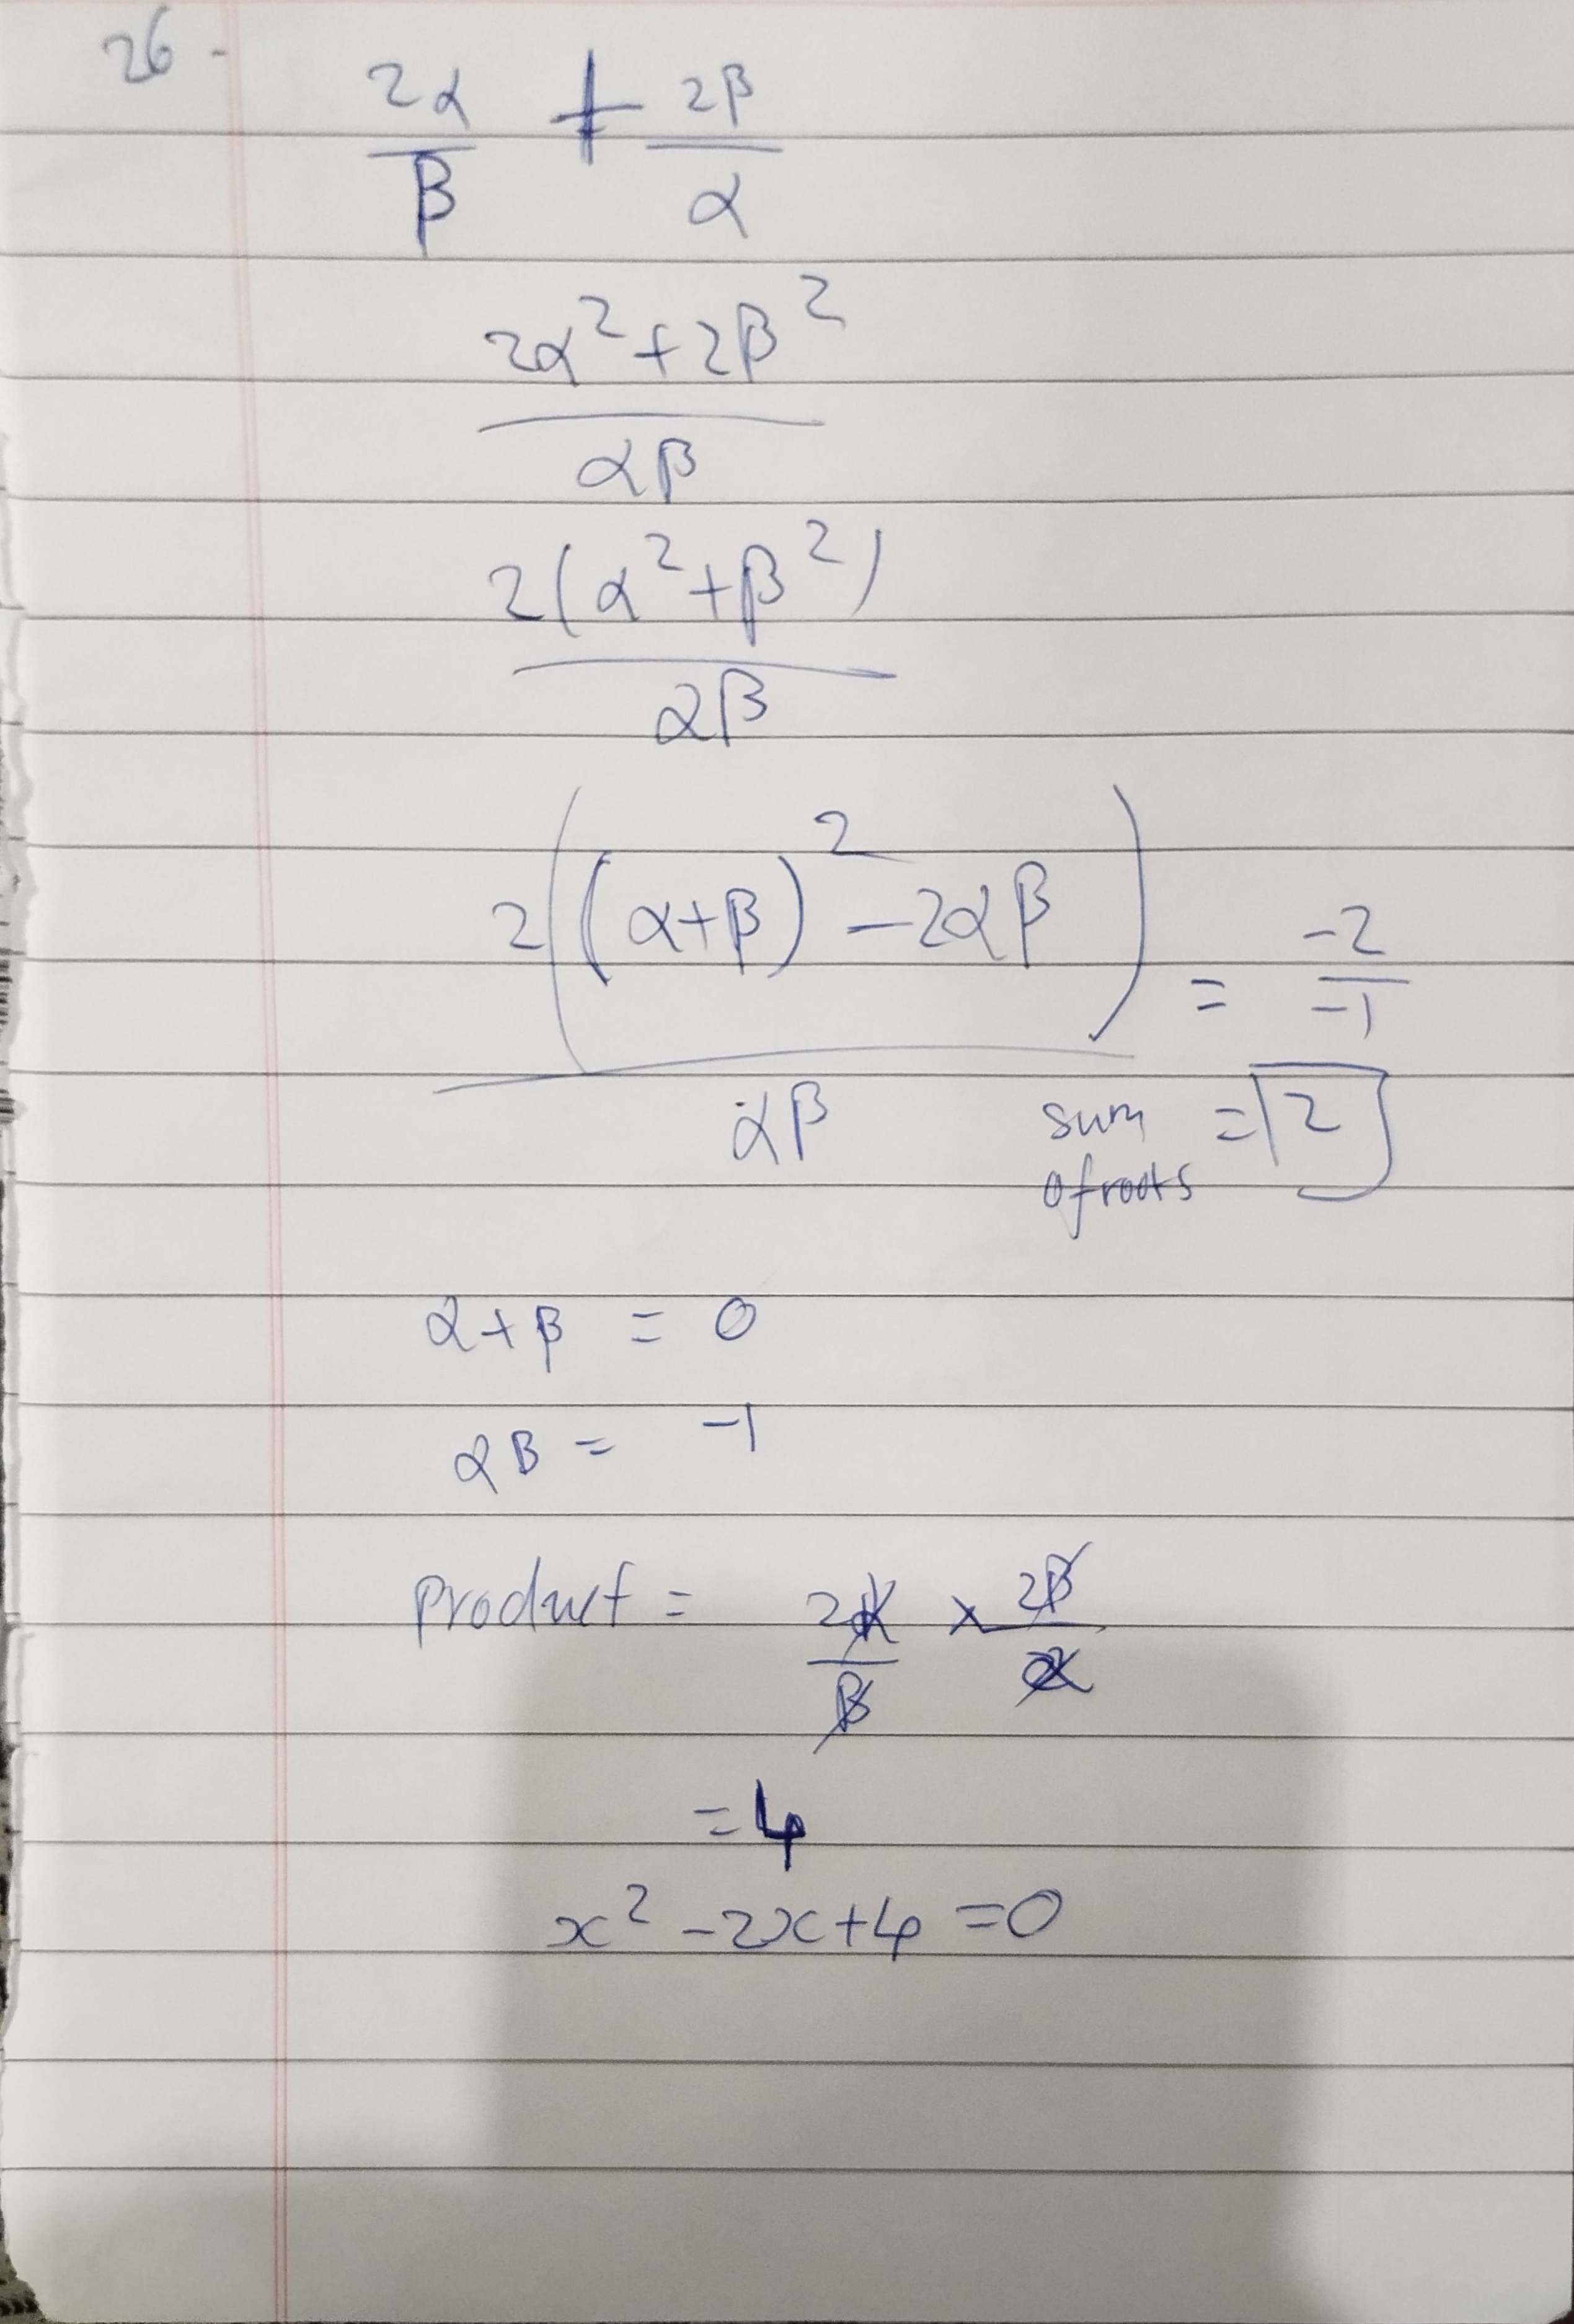 26 -
2α/β + 2β/α
2α² + 2β² / αβ
2(α² + β²) / αβ
2((α+β)² - 2αβ) / αβ = -2/-1
sum of roots = 2
α+β = 0
αB = -1
product = 2α/β × 2β/α
= 4
x² - 2x + 4 = 0